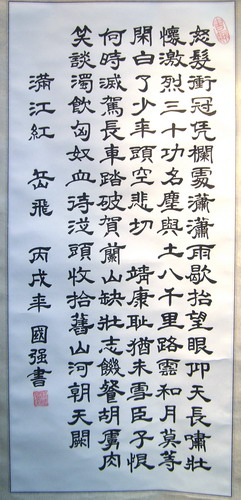 怒髮衝冠凭欄處瀟瀟雨歇抬望眼仰天長嘯壯
懷激烈三十功名塵與土八千里路雲和月莫等
閑白了少年頭空悲切 靖康耻猶未雪臣子恨
何時滅駕長車踏破賀蘭山缺壯志饑餐胡虜肉
笑談渴飲匈奴血待從頭收拾舊山河朝天闕
滿江紅 岳飛 丙戌年 國强書